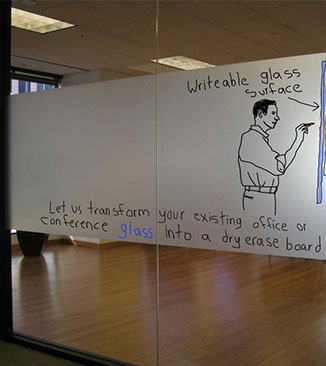 Writeable glass
surface
Let us transform your existing office or
conference glass into a dry erase board